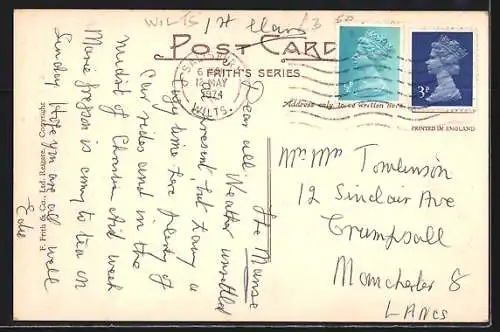 WILTS
1st Class
£3-50
POST CARD
FRITH'S SERIES
SALISBURY
6 PM
13 MAY
1974
WILTS.
½P
3P
Address only to be written here.
PRINTED IN ENGLAND
The Manse
Dear all. Weather unsettled
at present, but having a
lovely time here plenty of
Car rides and in the
midst of Christian Aid week
Marie Jepson is coming to tea on
Sunday Hope you are all well
Edie
F. Frith & Co., Ltd. Reigate. Copyright
Mr. Mrs Tomlinson
12 Sinclair Ave
Crumpsall
Manchester 8
LANCS